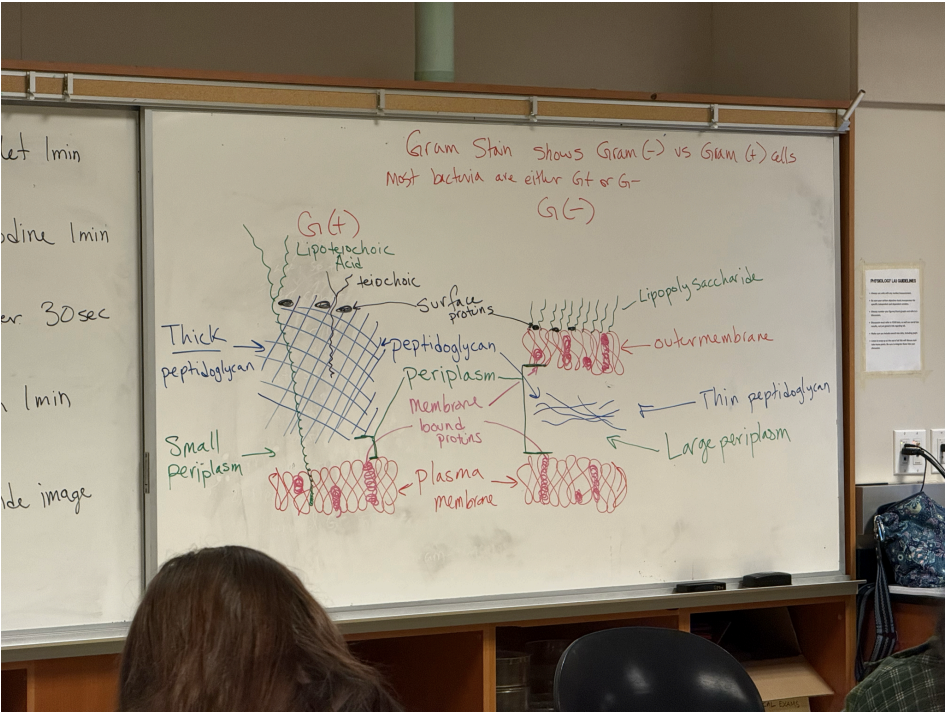 let 1min
odine 1min
er 30sec
1min
ide image
Gram Stain shows Gram (-) vs Gram (+) cells
Most bacteria are either G+ or G-
G(+)
G(-)
Lipoteiochoic
Acid
teiochoic
Surface
protins
Lipopolysaccharide
Thick
peptidoglycan
peptidoglycan
outermembrane
periplasm
membrane
bound
protins
Thin peptidoglycan
Small
periplasm
Large periplasm
plasma
membrane
PHYSIOLOGY LAB GUIDELINES
AL EXAMS